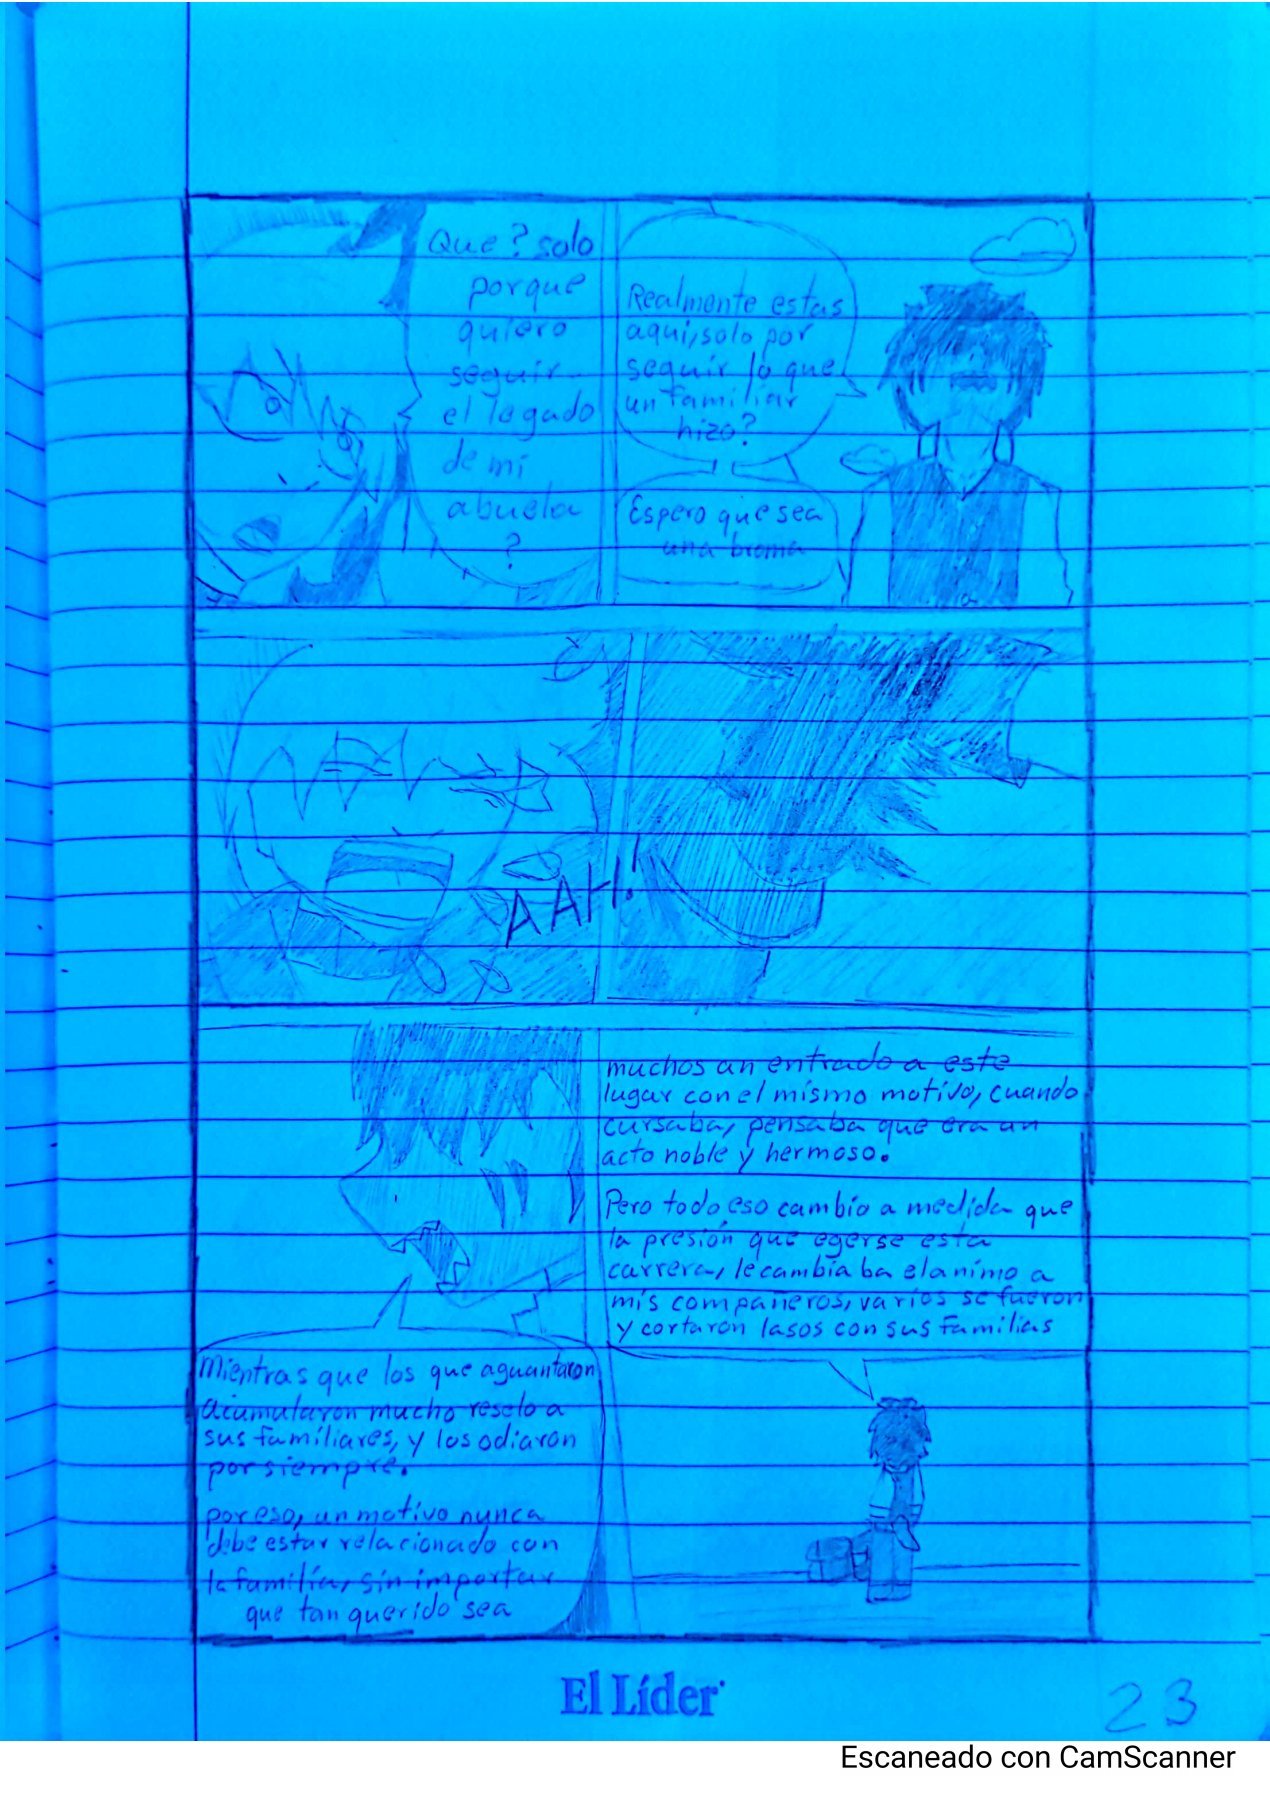 Realmente estas
aqui, solo por
seguir lo que
un familiar
hizo?
Espero que sea
una broma
Que? solo
porque
quiero
seguir
el legado
de mi
abuela
?
AAH!
muchos an entrado a este
lugar con el mismo motivo, cuando
cursaba, pensaba que era un
acto noble y hermoso.
Pero todo eso cambio a medida que
la presión que egerse esta
carrera, le cambia ba el animo a
mis compañeros, varios se fueron
y cortaron lasos con sus familias
Mientras que los que aguantaron
acumularon mucho reselo a
sus familiares, y los odiaron
por siempre.
por eso, un motivo nunca
debe estar relacionado con
la familia, sin importar
que tan querido sea
El Líder
23
Escaneado con CamScanner